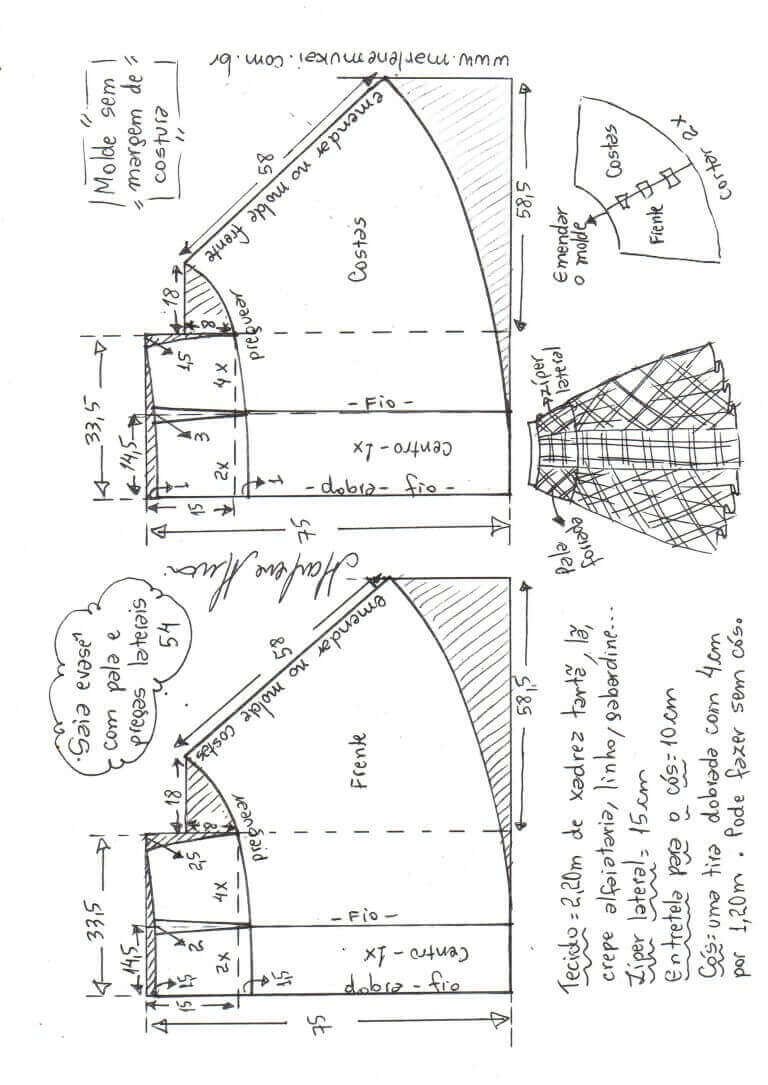 "Saia evasê
com pala e
pregas laterais
54
"Molde sem"
"margem de"
costura
www.marlenemukai.com.br
33,5
14,5
18
58
emendar no molde costas
2,5
8
4x
pregvear
2
1,5
15
2x
1,5
- Fio -
Frente
Centro - 1x
fio - dobra
75
58,5
33,5
14,5
18
58
emendar no molde frente
1,5
8
4x
pregvear
3
1
15
2x
1
- Fio -
Costas
Centro - 1x
- fio - dobra -
75
58,5
Tecido = 2,20m de xadrez tartã, lã,
crepe alfaiataria, linho, gabardine...
Zíper lateral = 15cm
Entretela para o cós = 10cm
Cós = uma tira dobrada com 4cm
por 1,20m. Pode fazer sem cós.
Pala
forrada
zíper
lateral
Emendar
o molde
Frente
Costas
cortar 2x